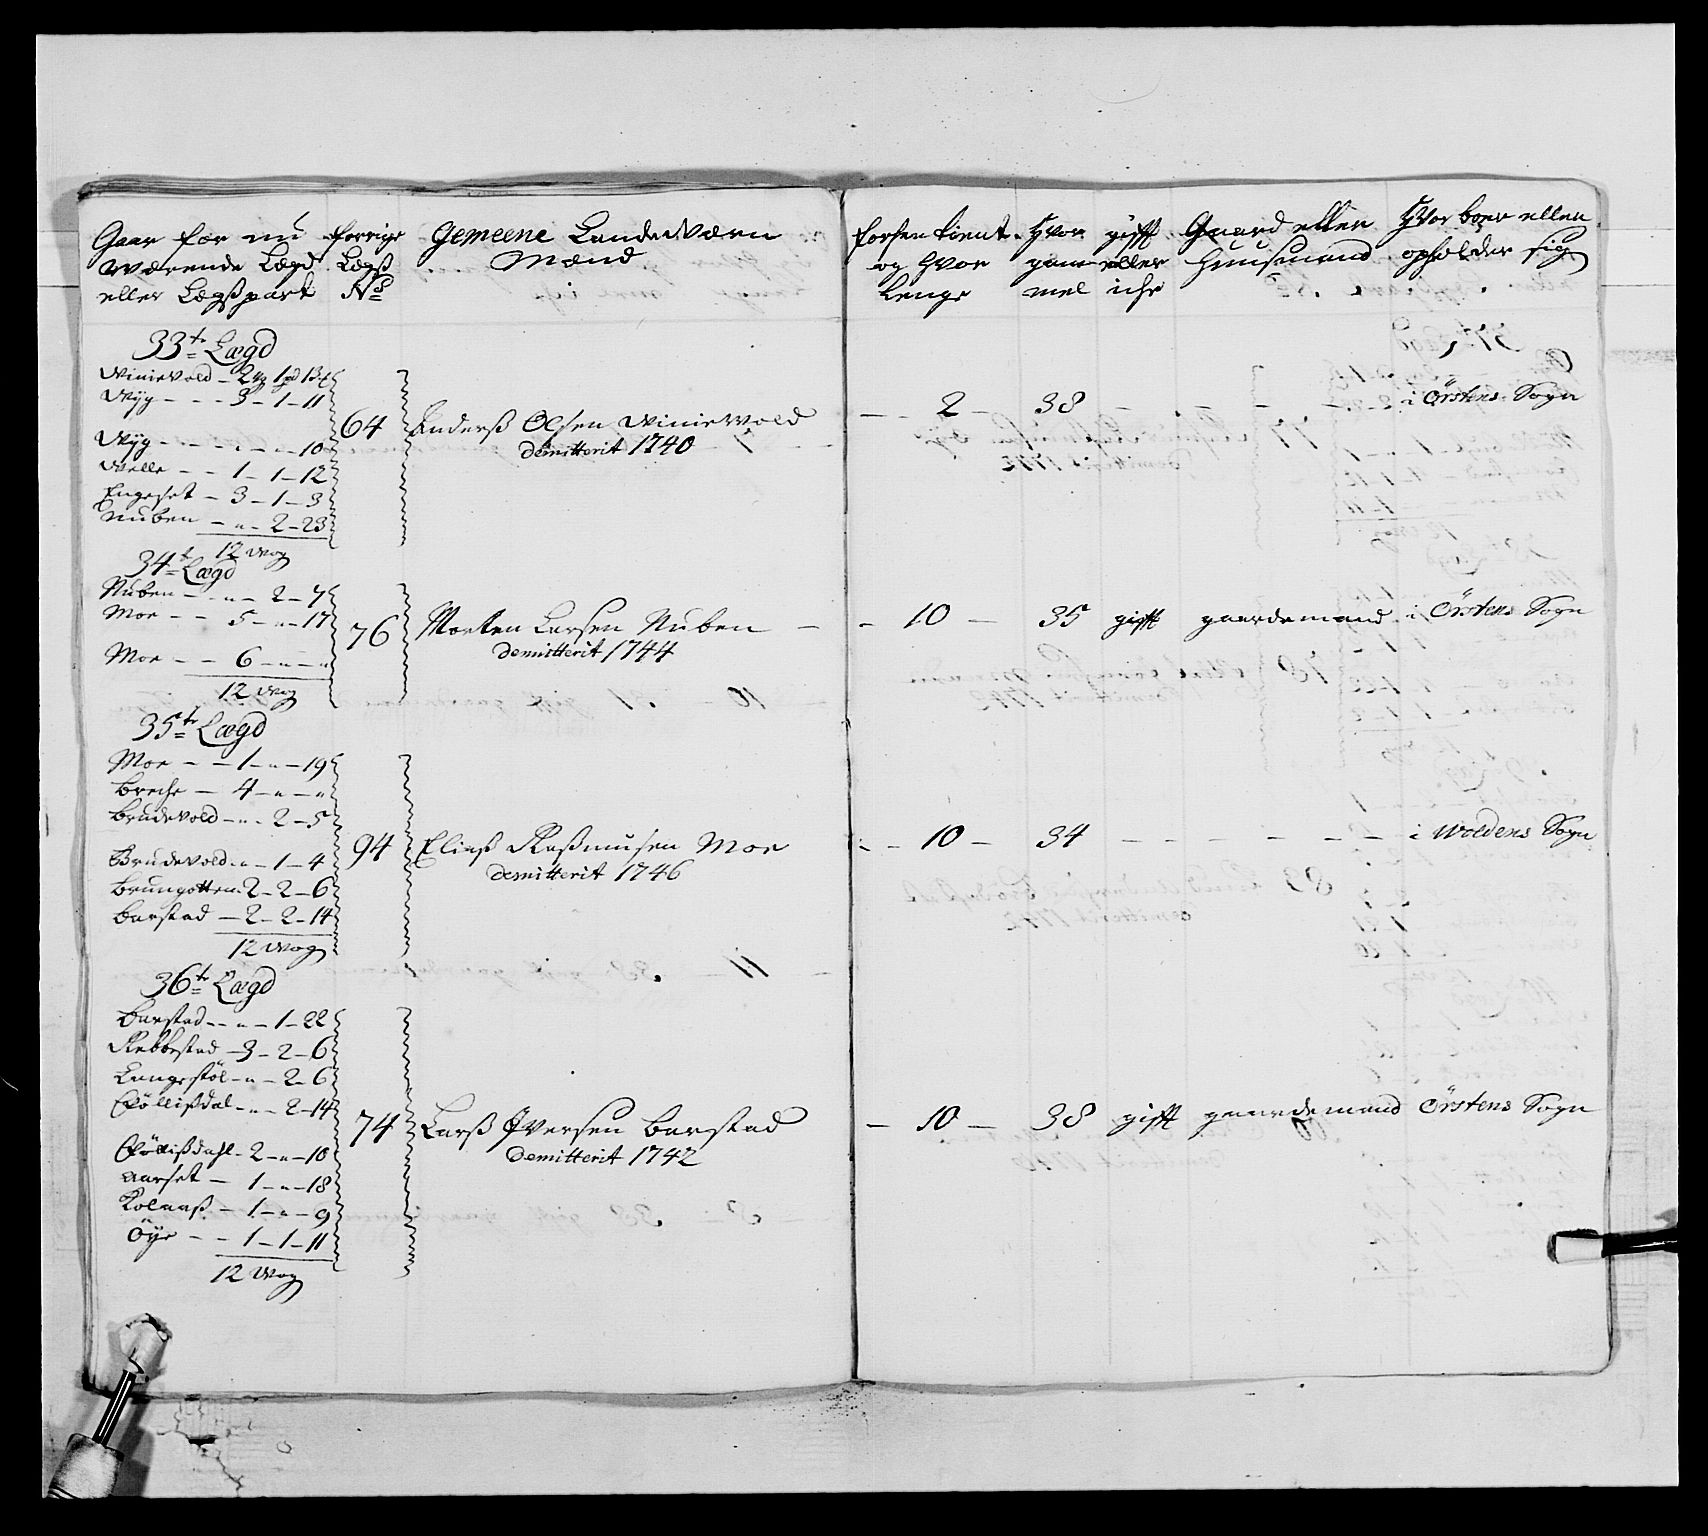 Gaar for nu
Wærende Lægd
eller Lægßpart
forrige
Lægß
No
Gemeene Landeværn
Mænd
forhen tient
og hvor
lenge
Hvor
gam
mel
gifft
eller
iche
Gaard eller
Huusmand
Hvor boer eller
opholder sig
33te Lægd
Winievold – 2 wg 1 pd 13
Wÿg – – – 3 – 1 – 11
Wÿg – – – „ – „ – 10
Welle – – 1 – 1 – 12
Engeset – 3 – 1 – 3
Nuben – „ – 2 – 23
12 Wog
64
Anderß Olsen Winiewold
demitterit 1740
– – 2 – 38 – – – – – i Örstens Sogn
34te Lægd
Nuben – – „ – 2 – 7
Moe – – 5 – „ – 17
Moe – – 6 – „ – „
12 Wog
76
Morten Larsen Nuben –
demitterit 1744
– 10 – 35 gifft gaardemand i Örstens Sogn
35te Lægd
Moe – – 1 – „ – 19
Breche – 4 – „ – „
Brudevold – „ – 2 – 5
Brudevold – „ – 1 – 4
Brungotten 2 – 2 – 6
Barstad – 2 – 2 – 14
12 Wog
94
Eliaß Raßmusen Moe
demitterit 1746
– – 10 – 34 – – – – – – i Woldens Sogn
36te Lægd
Barstad – – „ – 1 – 22
Rebbestad – 3 – 2 – 6
Langestöl – „ – 2 – 6
Follißdal – „ – 2 – 14
Föllißdahl – 2 – „ – 10
Aarset – 1 – „ – 18
Kolaaß – 1 – „ – 9
Öÿe – – 1 – 1 – 11
12 Wog
74
Larß Iversen Barstad
demitterit 1742
– 10 – 38 gifft gaardemand Örstens Sogn